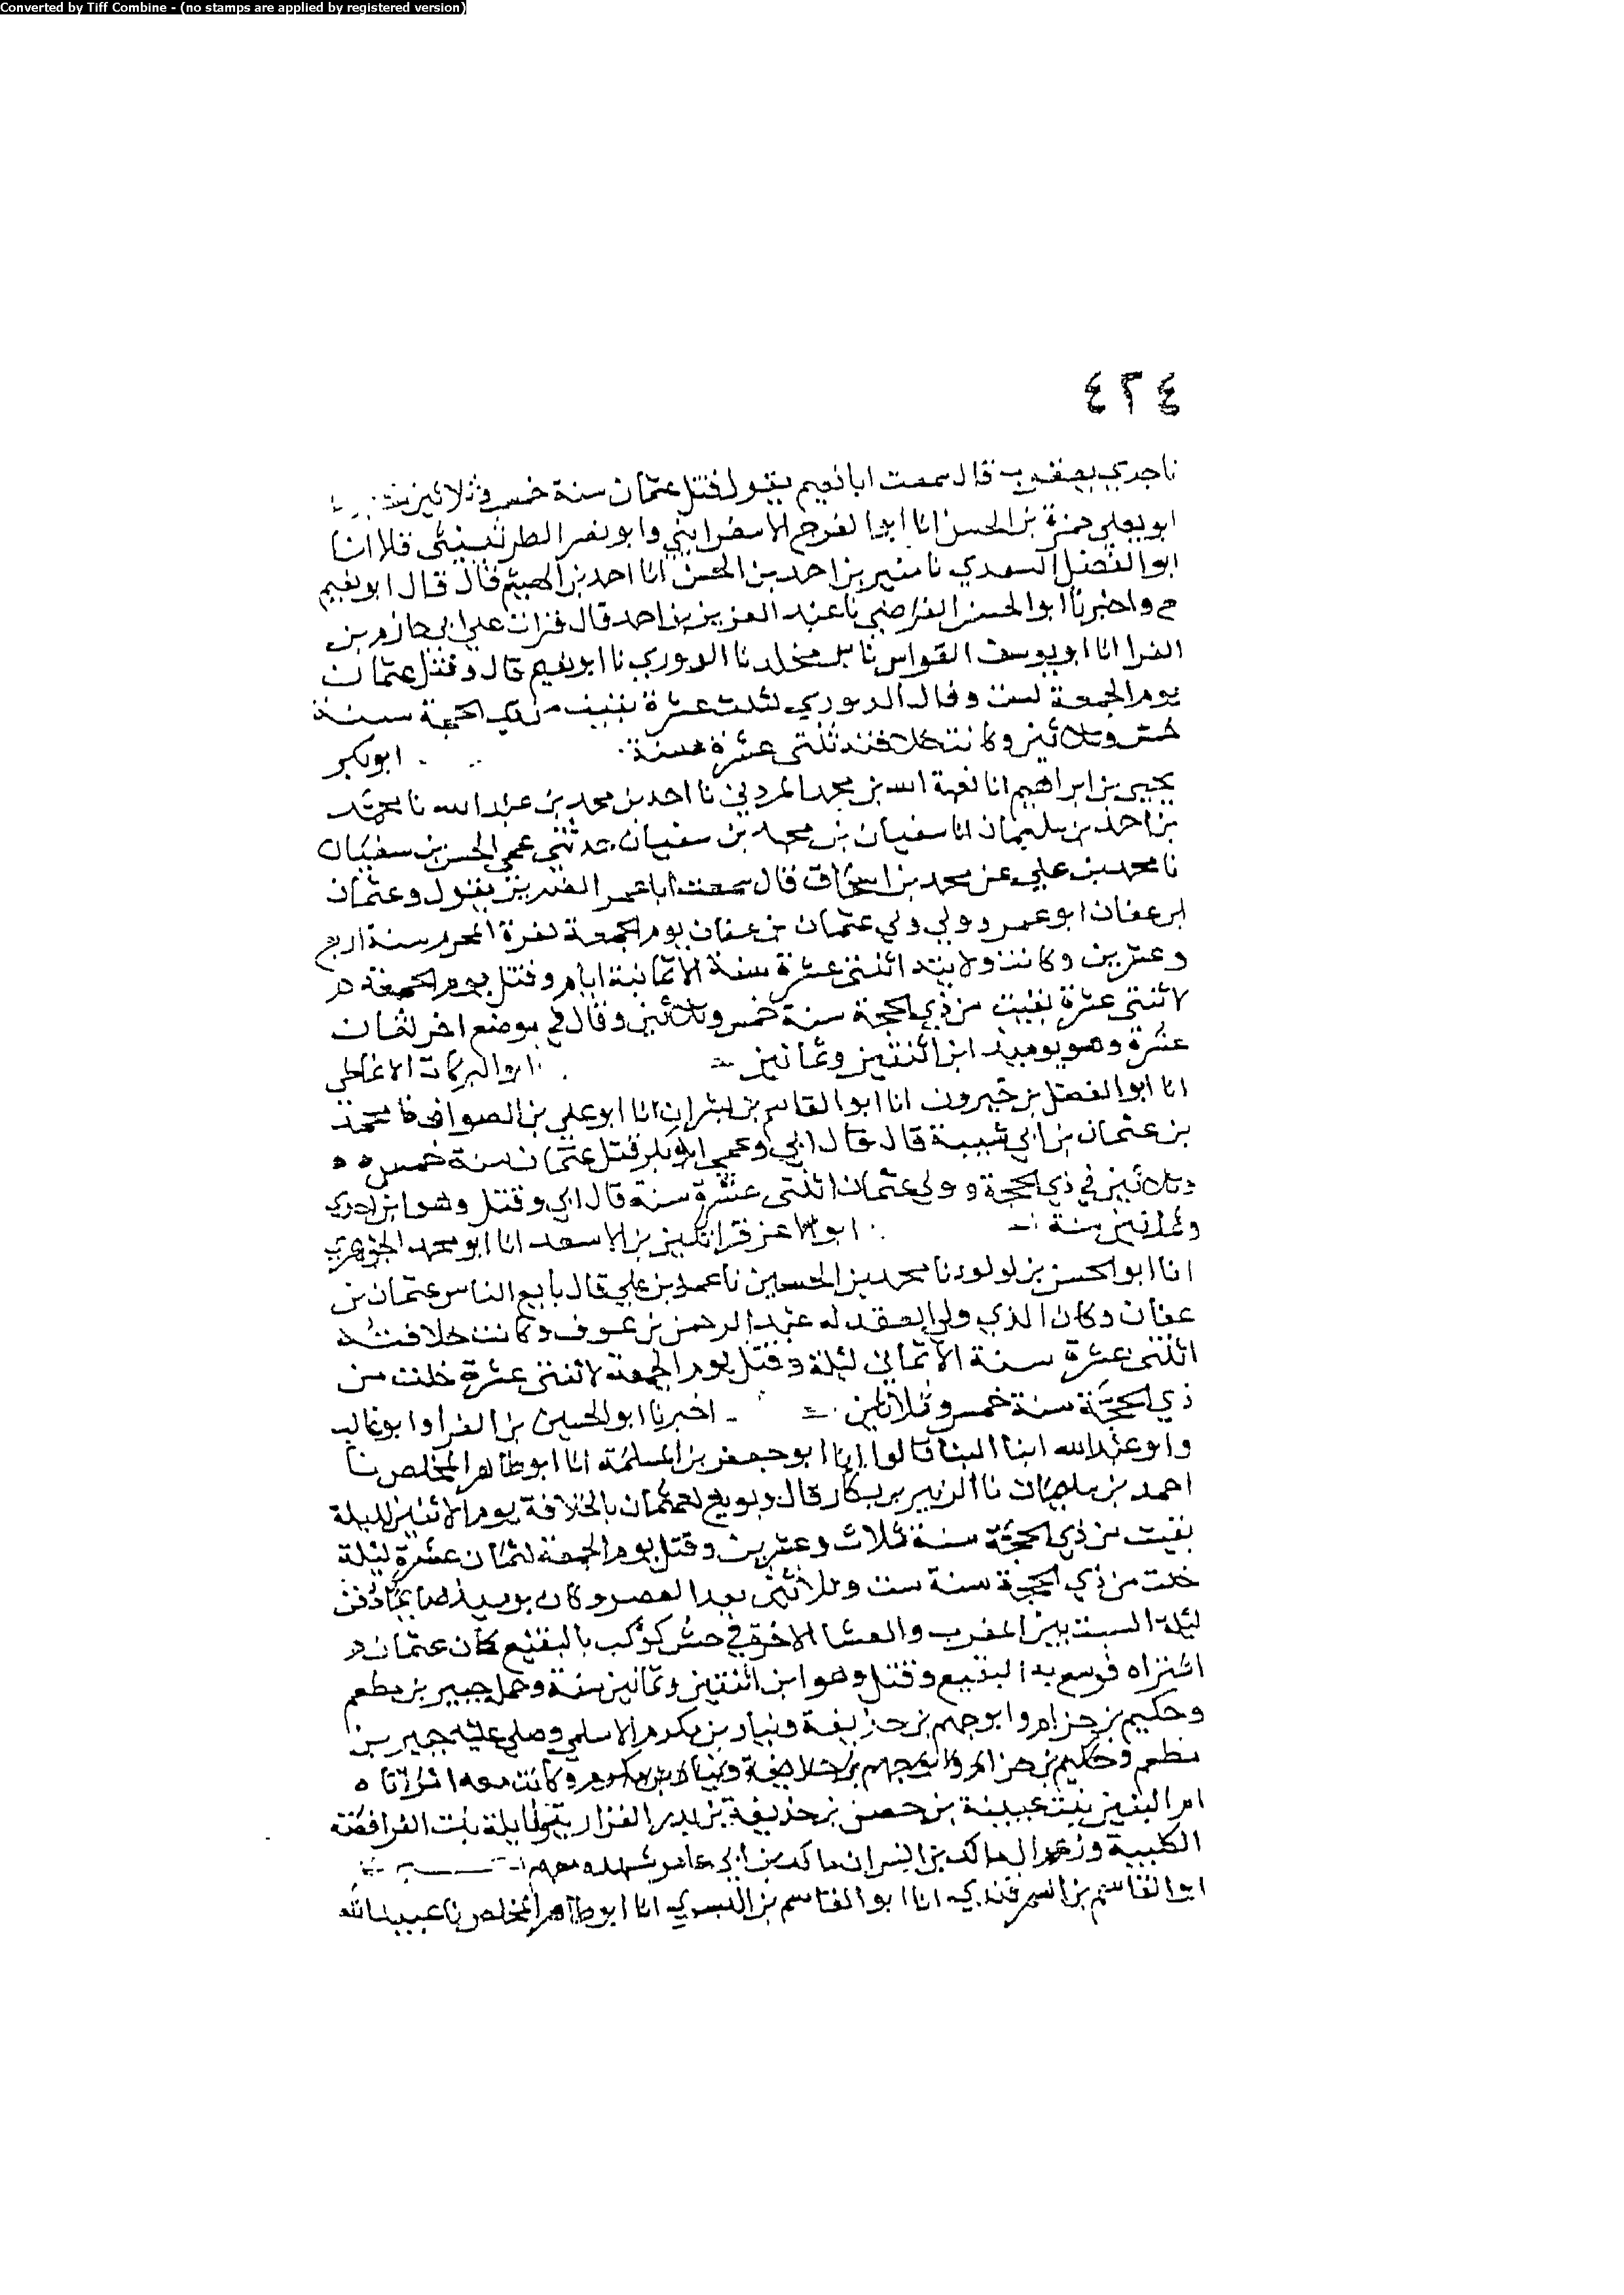 Converted by Tiff Combine - (no stamps are applied by registered version)
٤٢٤
نا جدي يعقوب قال سمعت ابا نعيم يقول قتل عثمان سنة خمس وثلاثين
ابو يعلى حمزة بن الحسن انا ابو الفرج الاسفرايني وابو نصر الطرثيثي قالا انا
ابو الفضل السعدي نا منير بن احمد بن الحسن انا احمد بن الهيثم قال قال ابو نعيم
ح واخبرنا ابو الحسن الفرضي نا عبد العزيز بن احمد قال قرات على ابي حازم بن
الفرا انا ابو يوسف القواس نا بن مخلد نا الدوري نا ابو نعيم قال وقتل عثمان
يوم الجمعة لست وقال الدوري لثلث عشرة بقيت من ذي الحجة سنة
خمس وثلاثين وكانت خلافته ثنتى عشرة سنة ابو بكر
يحيى بن ابراهيم انا نعمة الله بن محمد المردي نا احمد بن محمد بن عبد الله نا محمد
بن احمد بن سليمان انا سفيان بن محمد بن سفيان حدثني عمي الحسن بن سفيان
نا محمد بن علي عن محمد بن اسحاق قال سمعت ابا عمر الضرير يقول وعثمان
ابن عفان ابو عمرو وولي ولي عثمان بن عفان يوم الجمعة لغرة المحرم سنة اربع
وعشرين وكانت ولايته اثنتى عشرة سنة الا ثمانية ايام وقتل يوم الجمعة
لاثنتى عشرة بقيت من ذي الحجة سنة خمس وثلاثين وقال في موضع اخر لثمان
عشرة وهو يوميذ ابن اثنتين وثمانين ابو البركات الانماطي
انا ابو الفضل بن خيرون انا ابو القاسم بن بشران انا ابو علي بن الصواف نا محمد
بن عثمان بن ابي شيبة قال قال ابي وعمي ابو بكر قتل عثمان سنة خمس
وثلاثين في ذي الحجة وولي عثمان اثنتى عشرة سنة قال ابي وقتل وهو ابن احدى
وثمانين سنة ابو الاعز قراتكين بن الاسعد انا ابو محمد الجوهري
انا ابو الحسن بن لولو نا محمد بن الحسين نا عمرو بن علي قال بايع الناس عثمان بن
عفان وكان الذي ولي العقد له عبد الرحمن بن عوف وكانت خلافته
اثنتى عشرة سنة الا ثماني ليلة وقتل يوم الجمعة لاثنتى عشرة خلت من
ذي الحجة سنة خمس وثلاثين اخبرنا ابو الحسين بن الفرا وابو غالب
وابو عبد الله ابنا البنا قالوا انا ابو جعفر بن المسلمة انا ابو طاهر المخلص نا
احمد بن سليمان نا الزبير بن بكار قال وبويع لعثمان بالخلافة يوم الاثنين لليلة
بقيت من ذي الحجة سنة ثلاث وعشرين وقتل يوم الجمعة لثمان عشرة ليلة
خلت من ذي الحجة سنة ست وثلاثين بعد العصر وكان يوميذ صايما ودفن
ليلة السبت بين المغرب والعشا الاخرة في حش كوكب بالبقيع كان عثمان
اشتراه فوسع به البقيع وقتل وهو ابن اثنتين وثمانين سنة وحمله جبير بن مطعم
وحكيم بن حزام وابو جهم بن حذيفة ونيار بن مكرم الاسلمي وصلى عليه جبير بن
مطعم وحكيم بن حزام وابو جهم بن حذيفة ونيار بن مكرم وكانت معه امراتاه
ام البنين بنت عيينة بن حصن بن حذيفة بن بدر الفزارية ونايلة بنت الفرافصة
الكلبية وزعم مالك بن انس ان مالك بن ابي عامر شهده معهم
ابو القاسم بن السمرقندي انا ابو القاسم بن البسري انا ابو طاهر المخلص نا عبيد الله